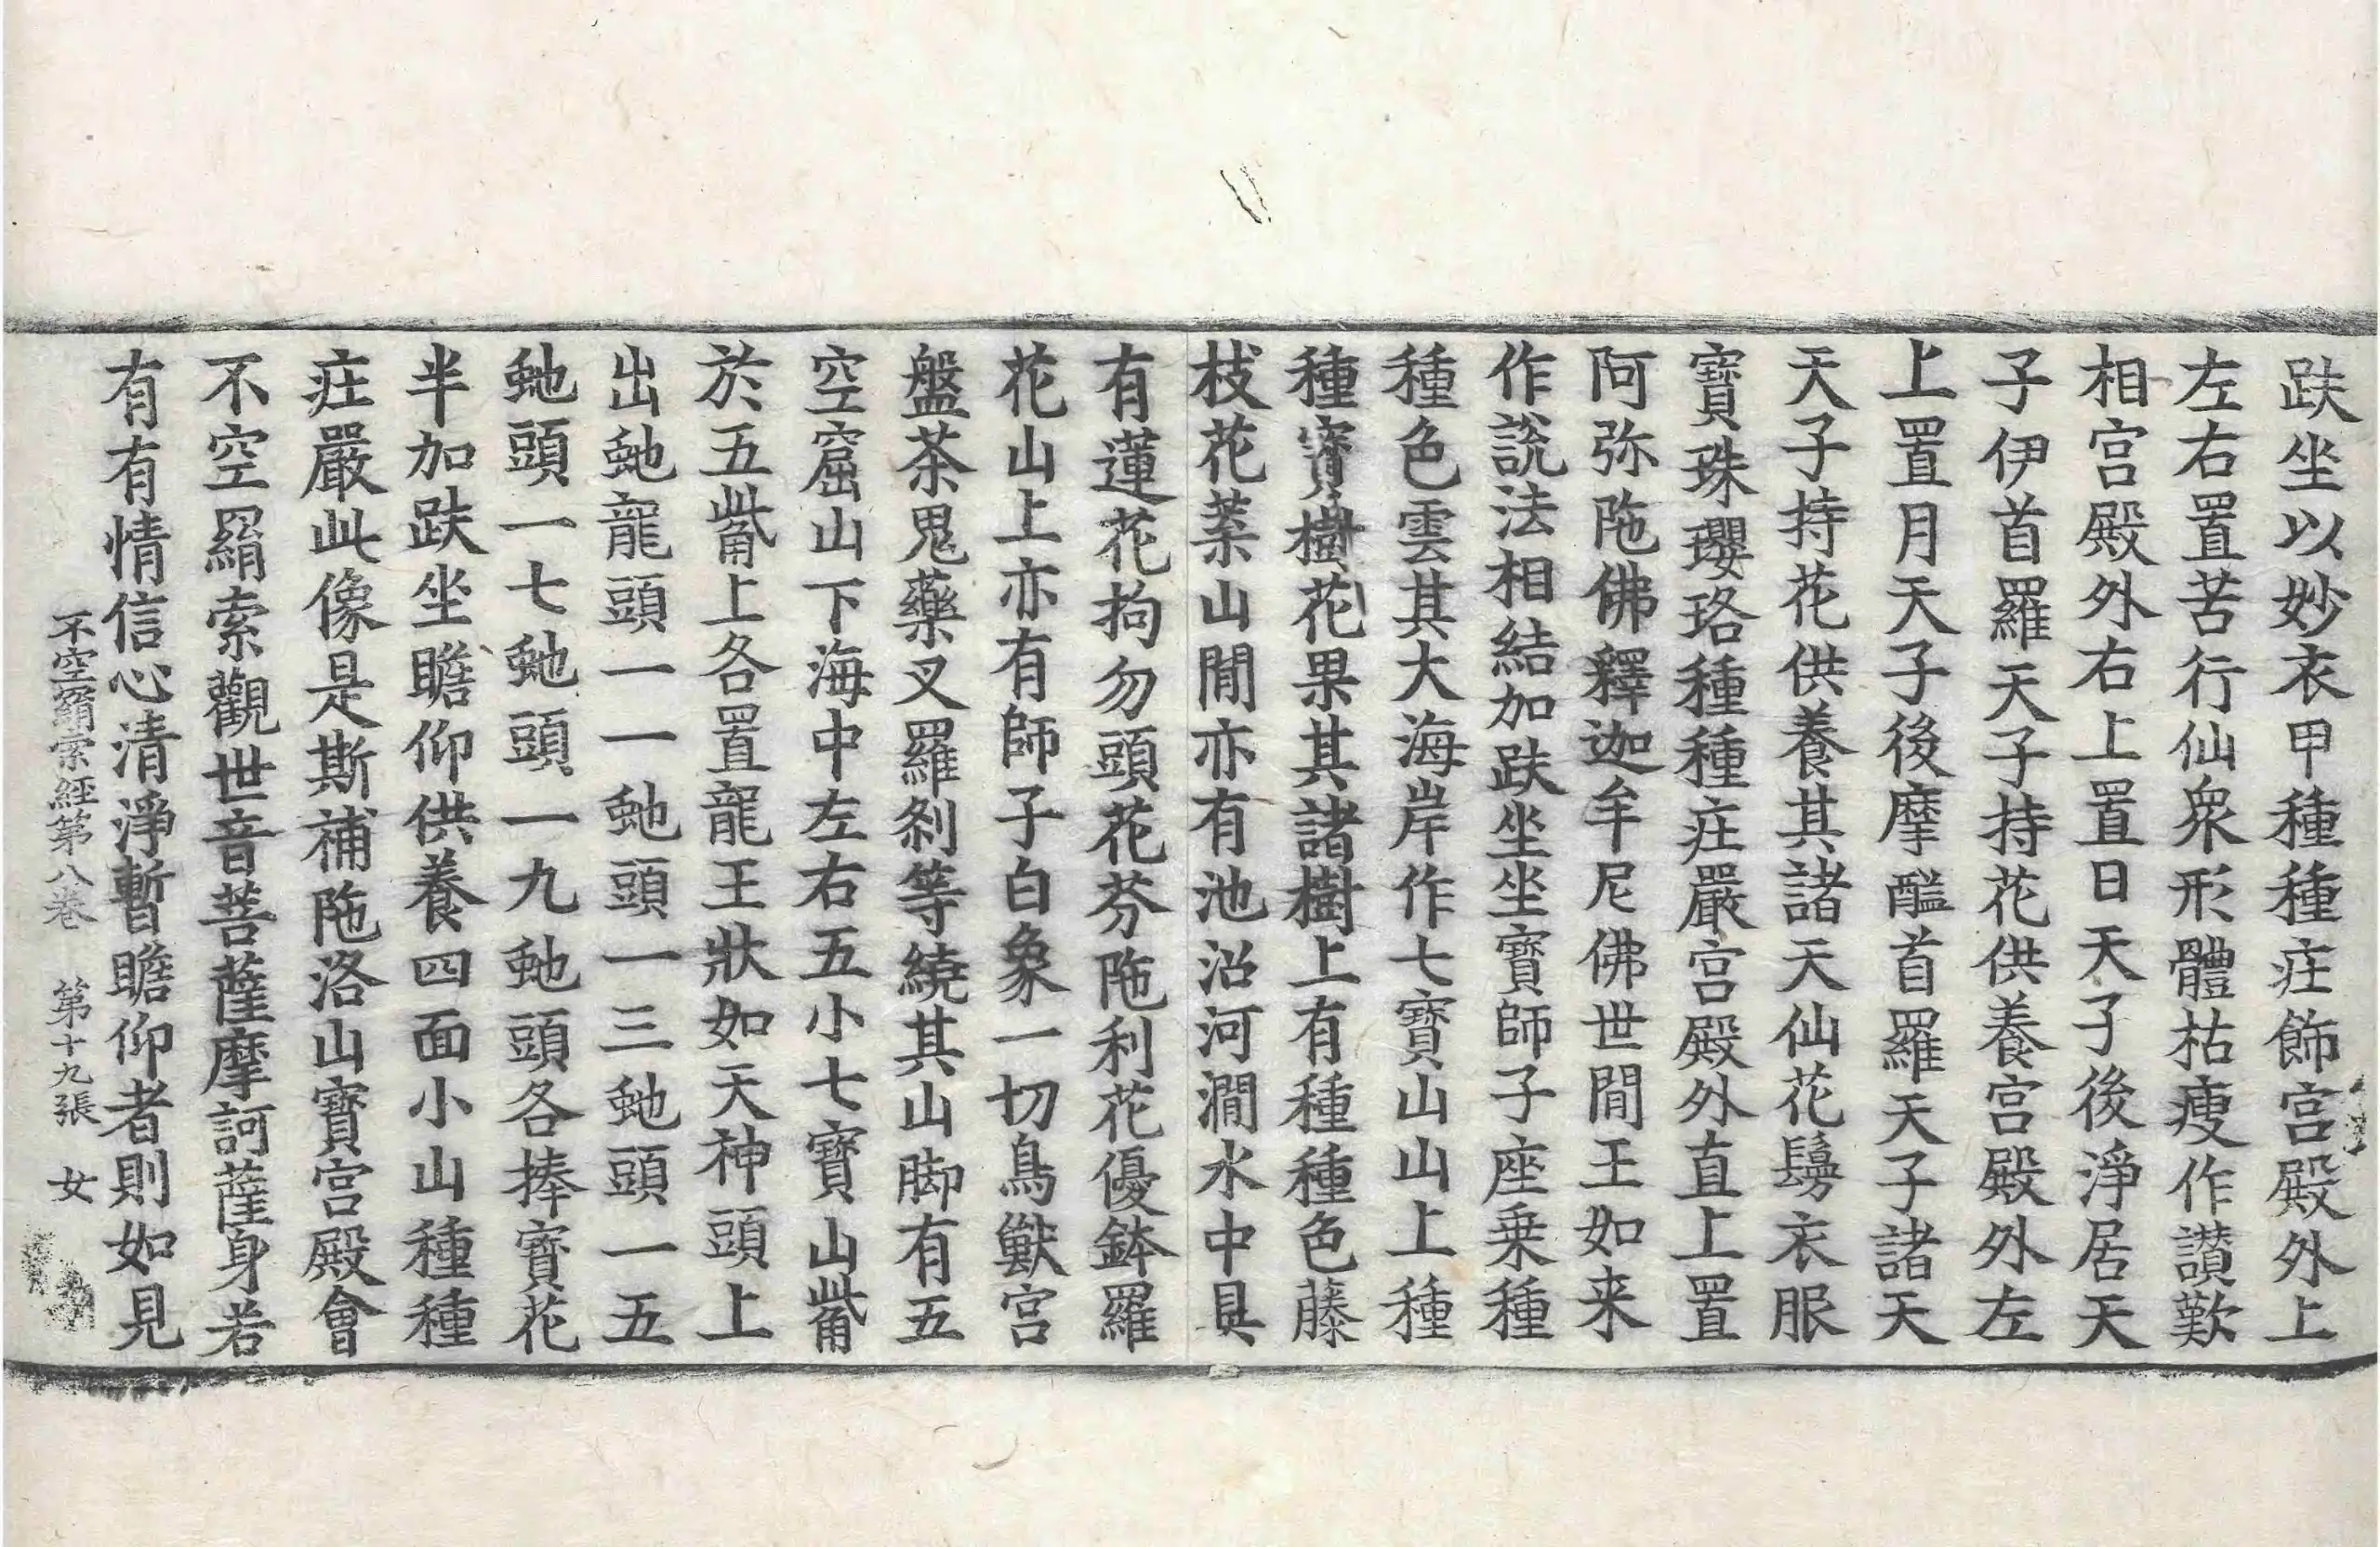 趺坐以妙衣甲種種莊飾宮殿外上
左右置苦行仙衆形體枯瘦作讃歎
相宮殿外右上置日天子後淨居天
子伊首羅天子持花供養宮殿外左
上置月天子後摩醯首羅天子諸天
天子持花供養其諸天仙花鬘衣服
寶珠瓔珞種種莊嚴宮殿外直上置
阿弥陁佛釋迦牟尼佛世閒王如来
作說法相結加趺坐坐寶師子座乗種
種色雲其大海岸作七寶山山上種
種寶樹花果其諸樹上有種種色藤
枝花菓山閒亦有池沼河㵎水中具
有蓮花拘勿頭花芬陁利花優鉢羅
花山上亦有師子白象一切鳥獸宮
盤茶鬼藥叉羅剎等繞其山脚有五
空窟山下海中左右五小七寶山㭰
於五㭰上各置龍王狀如天神頭上
出虵龍頭一一虵頭一三虵頭一五
虵頭一七虵頭一九虵頭各捧寶花
半加趺坐瞻仰供養四面小山種種
莊嚴此像是斯補陁洛山寶宮殿會
不空羂索觀世音菩薩摩訶薩身若
有有情信心清淨暫瞻仰者則如見
不空羂索經第八卷 第十九張 女